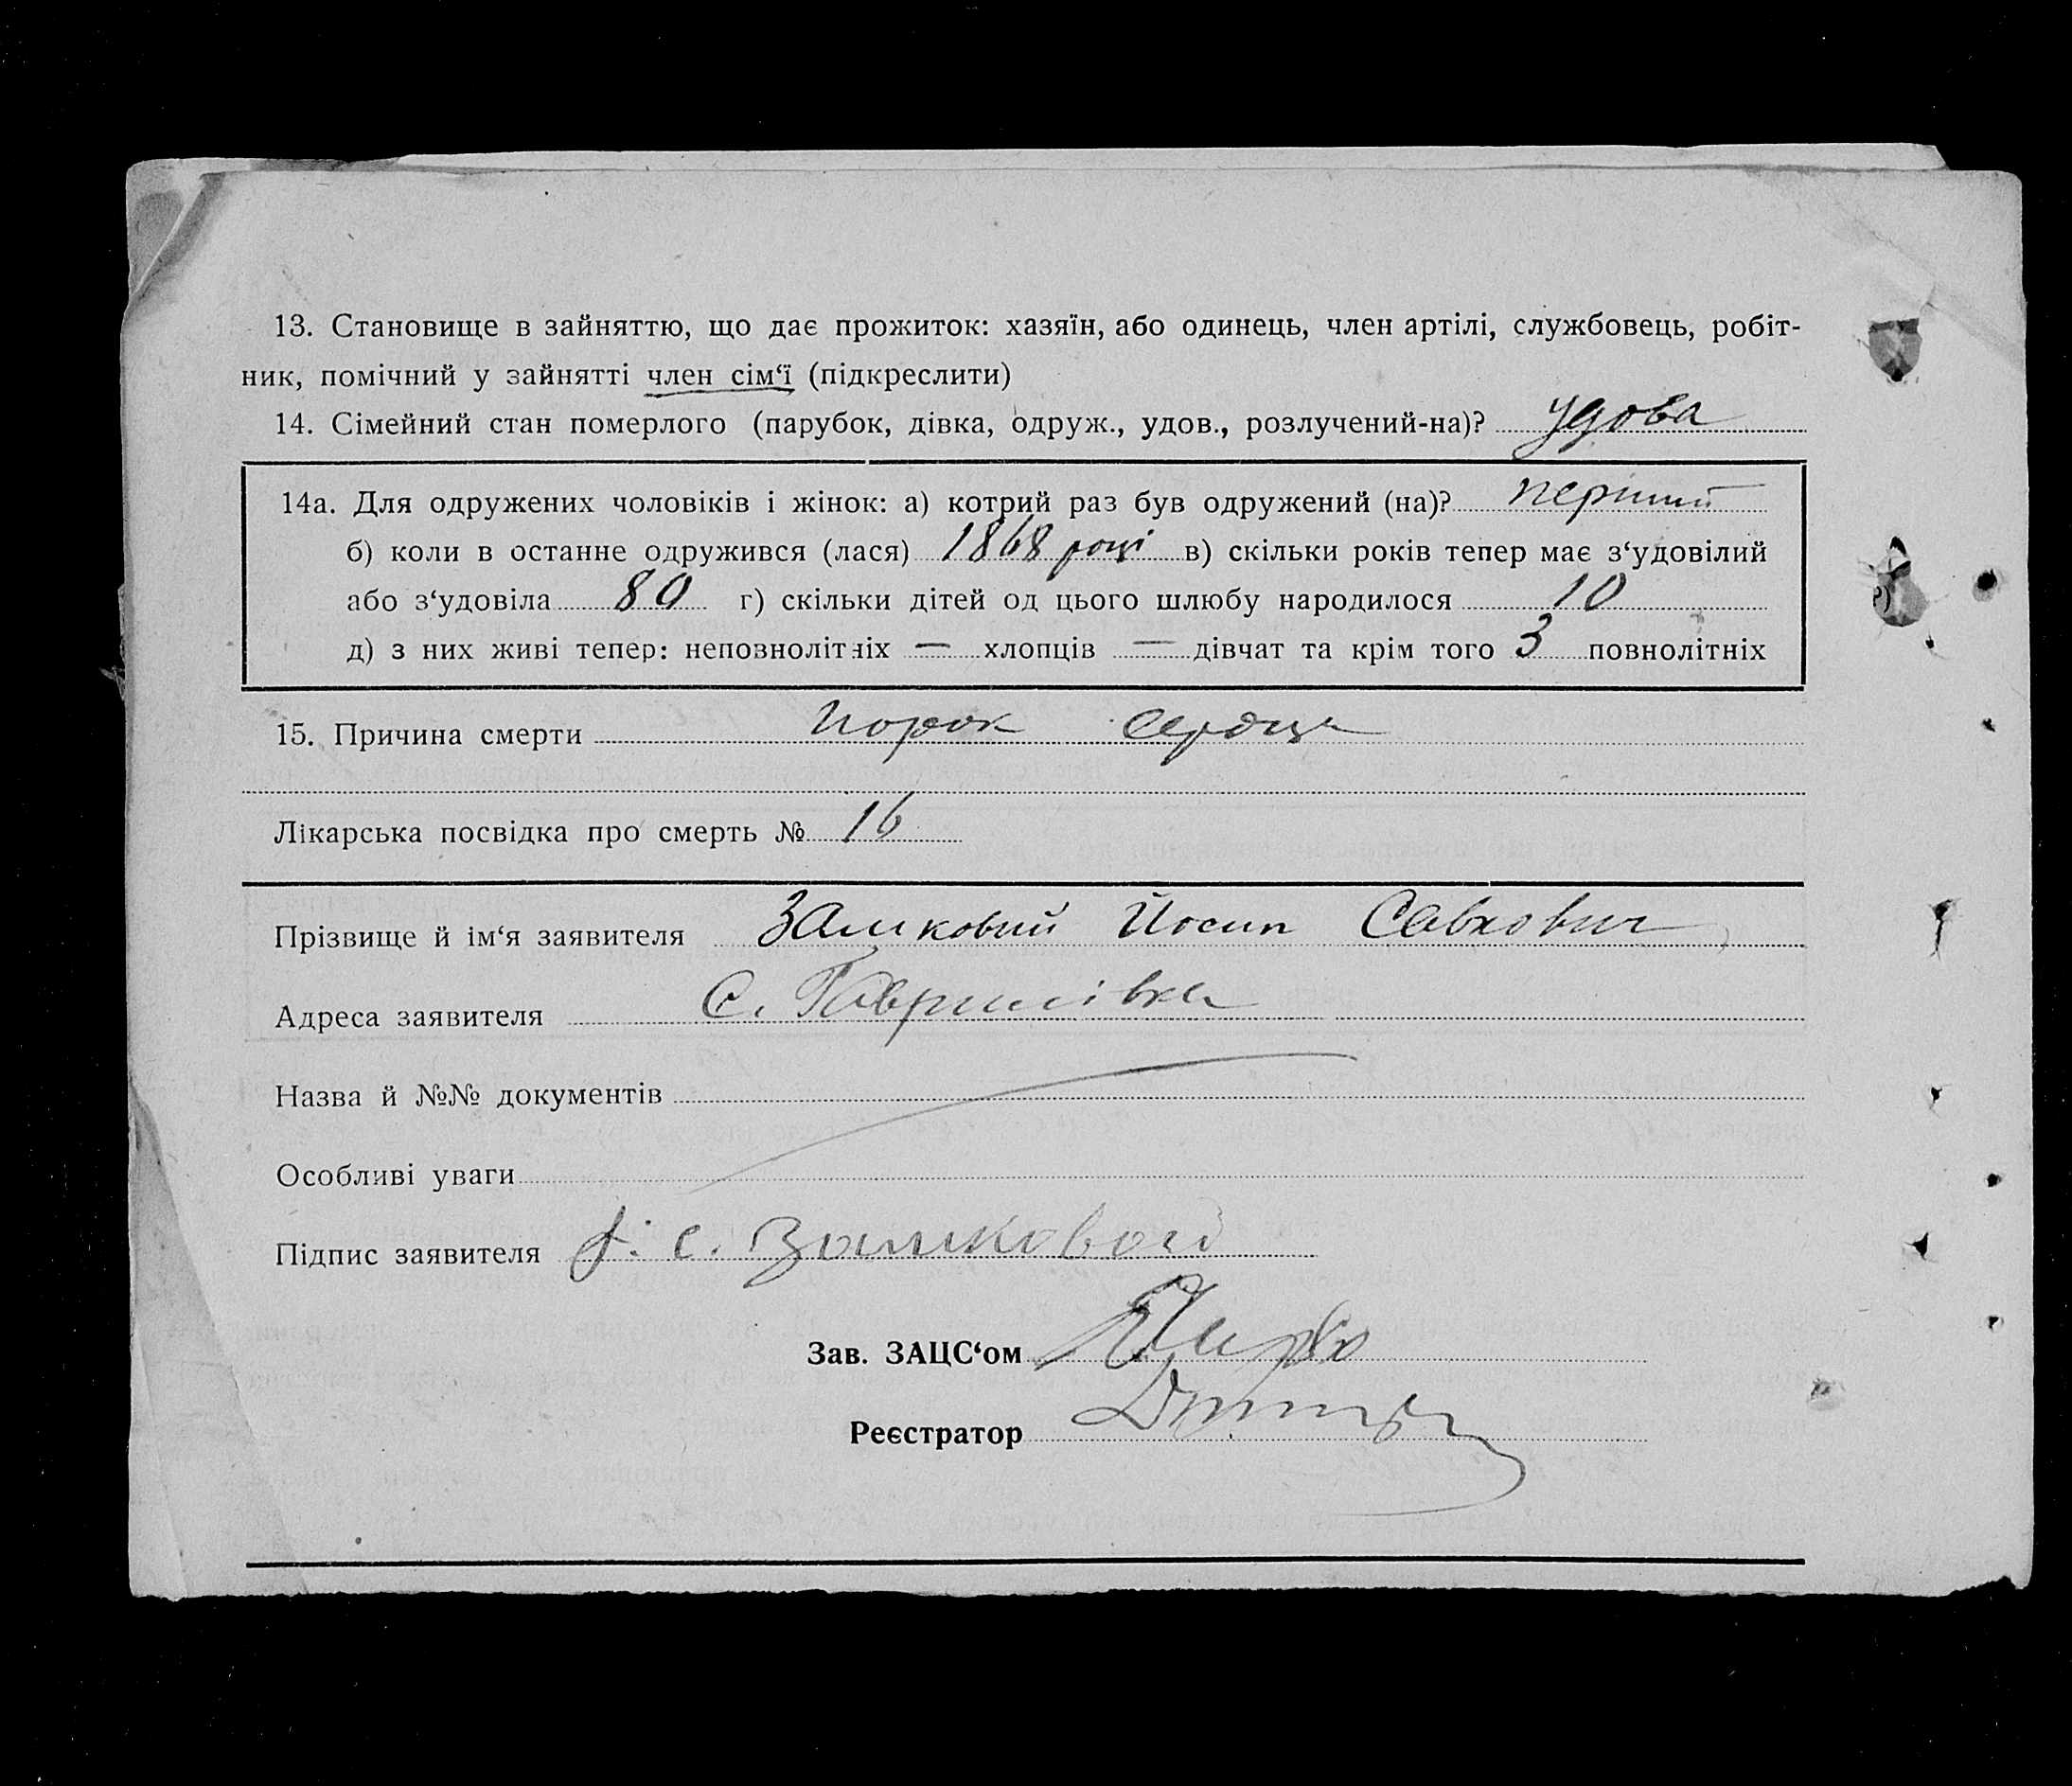 13. Становище в зайняттю, що дає прожиток: хазяїн, або одинець, член артілі, службовець, робіт-
ник, помічний у зайнятті член сім‘ї (підкреслити)
14. Сімейний стан померлого (парубок, дівка, одруж., удов., розлучений-на)? удова
14а. Для одружених чоловіків і жінок: а) котрий раз був одружений (на)? перший
б) коли в останне одружився (лася) 1868 році в) скільки років тепер має з‘удовілий
або з‘удовіла 80 г) скільки дітей од цього шлюбу народилося 10
д) з них живі тепер: неповнолітніх — хлопців — дівчат та крім того 3 повнолітніх
15. Причина смерти порок сердця
Лікарська посвідка про смерть № 16
Прізвище й ім‘я заявителя Замковий Йосип Савкович
Адреса заявителя С. Гаврилівка
Назва й №№ документів
Особливі уваги
Підпис заявителя с. Замковой
Зав. ЗАЦС‘ом
Реєстратор